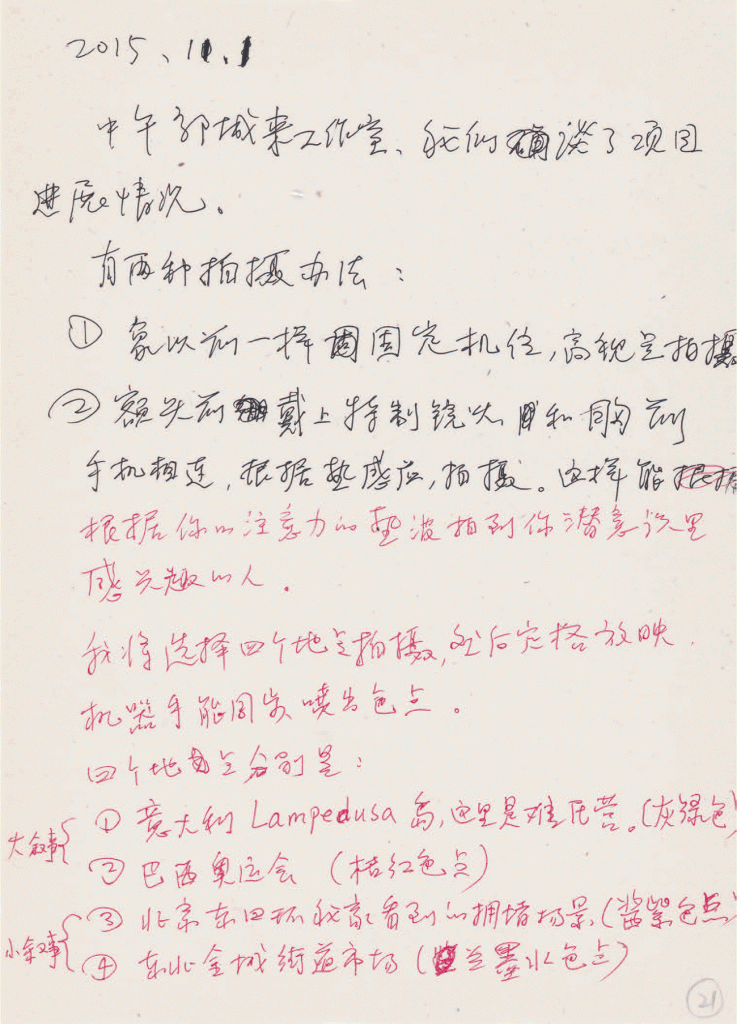 2015、11.1
中午郭城来工作室、我们谈了项目
进展情况。
有两种拍摄办法：
① 象以前一样固定机位，高视点拍摄
② 额头前戴上特制镜头和胸前
手机相连，根据热感应，拍摄。这样能
根据你的注意力的热波拍到你潜意识里
感兴趣的人。
我将选择四个地点拍摄，然后定格放映，
机器手能同步喷出色点。
四个地点分别是：
大叙事 ① 意大利 Lampedusa 岛，这里是难民营。(灰绿色)
② 巴西奥运会 (桔红色点)
小叙事 ③ 北京东四环我家看到的拥堵场景 (酱紫色点)
④ 东北金城街道市场 (兰墨水色点)
21